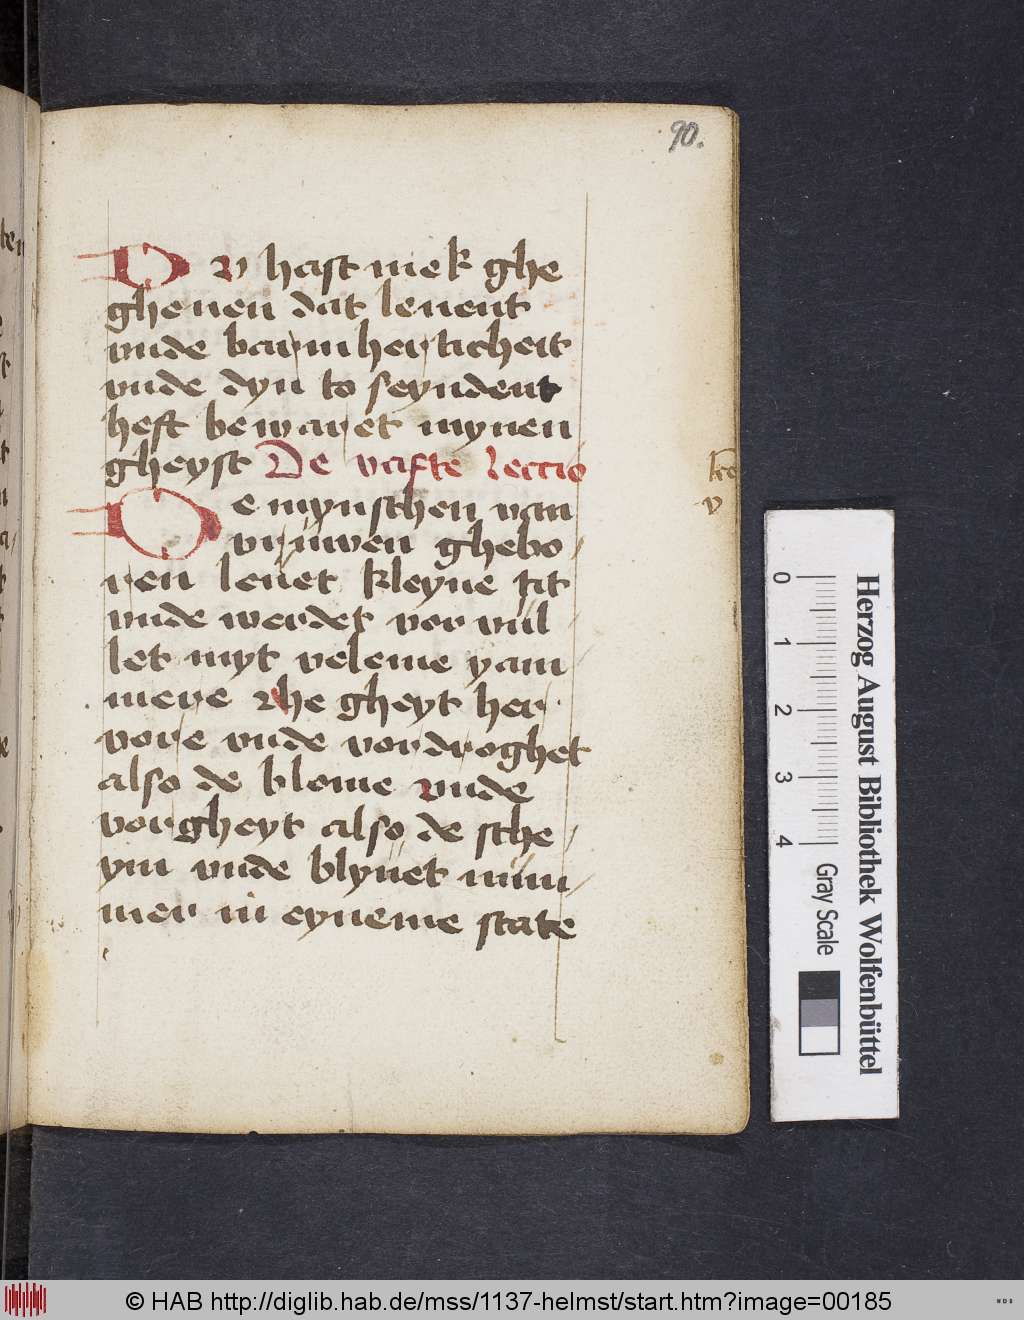 90.
Du hast mek ghe
gheuen dat leuent
vnde barmherticheit
vnde dyn to seyndent
heft bewaret mynen
gheyst De vifte leccio
De mynschen van
vruwen ghebo
ren leuet kleyne tit
vnde werdet vor vul
let myt veleme yam
mere He gheyt her
vore vnde vordroghet
also de blome vnde
vorgheyt also de sche
ym vnde blyuet nim
mer in eyneme state
v
0 1 2 3 4
Herzog August Bibliothek Wolfenbüttel
Gray Scale
© HAB http://diglib.hab.de/mss/1137-helmst/start.htm?image=00185